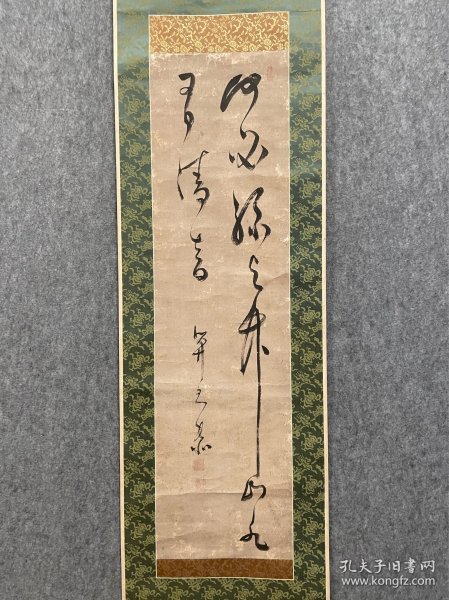 何必絲与竹山水
有清音
孔夫子旧书网
www.kongfz.com